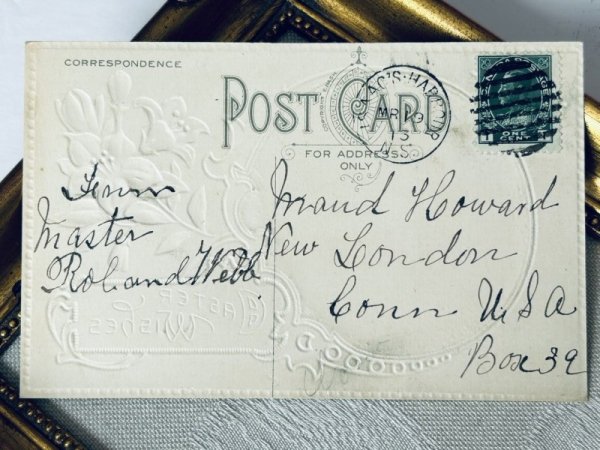 CORRESPONDENCE
POST CARD
FOR ADDRESS
ONLY
ISAAC'S HARBOUR
MR 19
13
N.S.
ONE
CENT
From
Master
Roland Webb
Maud Howard
New London
Conn U S A
Box 39
EASTER
WISHES